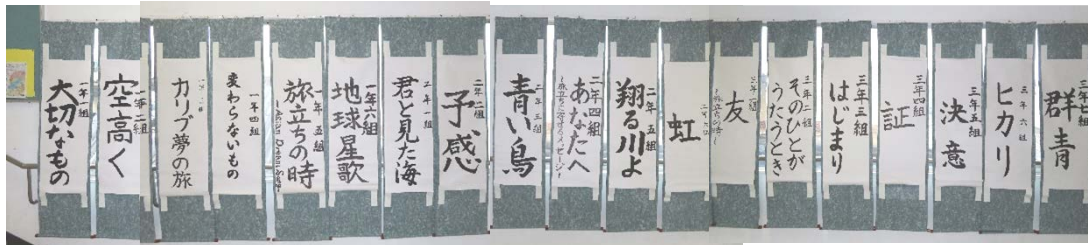 一年一組
大切なもの
一年二組
空高く
カリブ夢の旅
一年四組
変わらないもの
一年五組
旅立ちの時
~Asian Dream Song~
一年六組
地球星歌
二年一組
君と見た海
二年二組
予感
二年三組
青い鳥
二年四組
あなたへ
~旅立ちに寄せるメッセージ~
二年五組
翔る川よ
虹
三年一組
友
~旅立ちの時~
三年二組
そのひとが
うたうとき
三年三組
はじまり
三年四組
証
三年五組
決意
三年六組
ヒカリ
群青